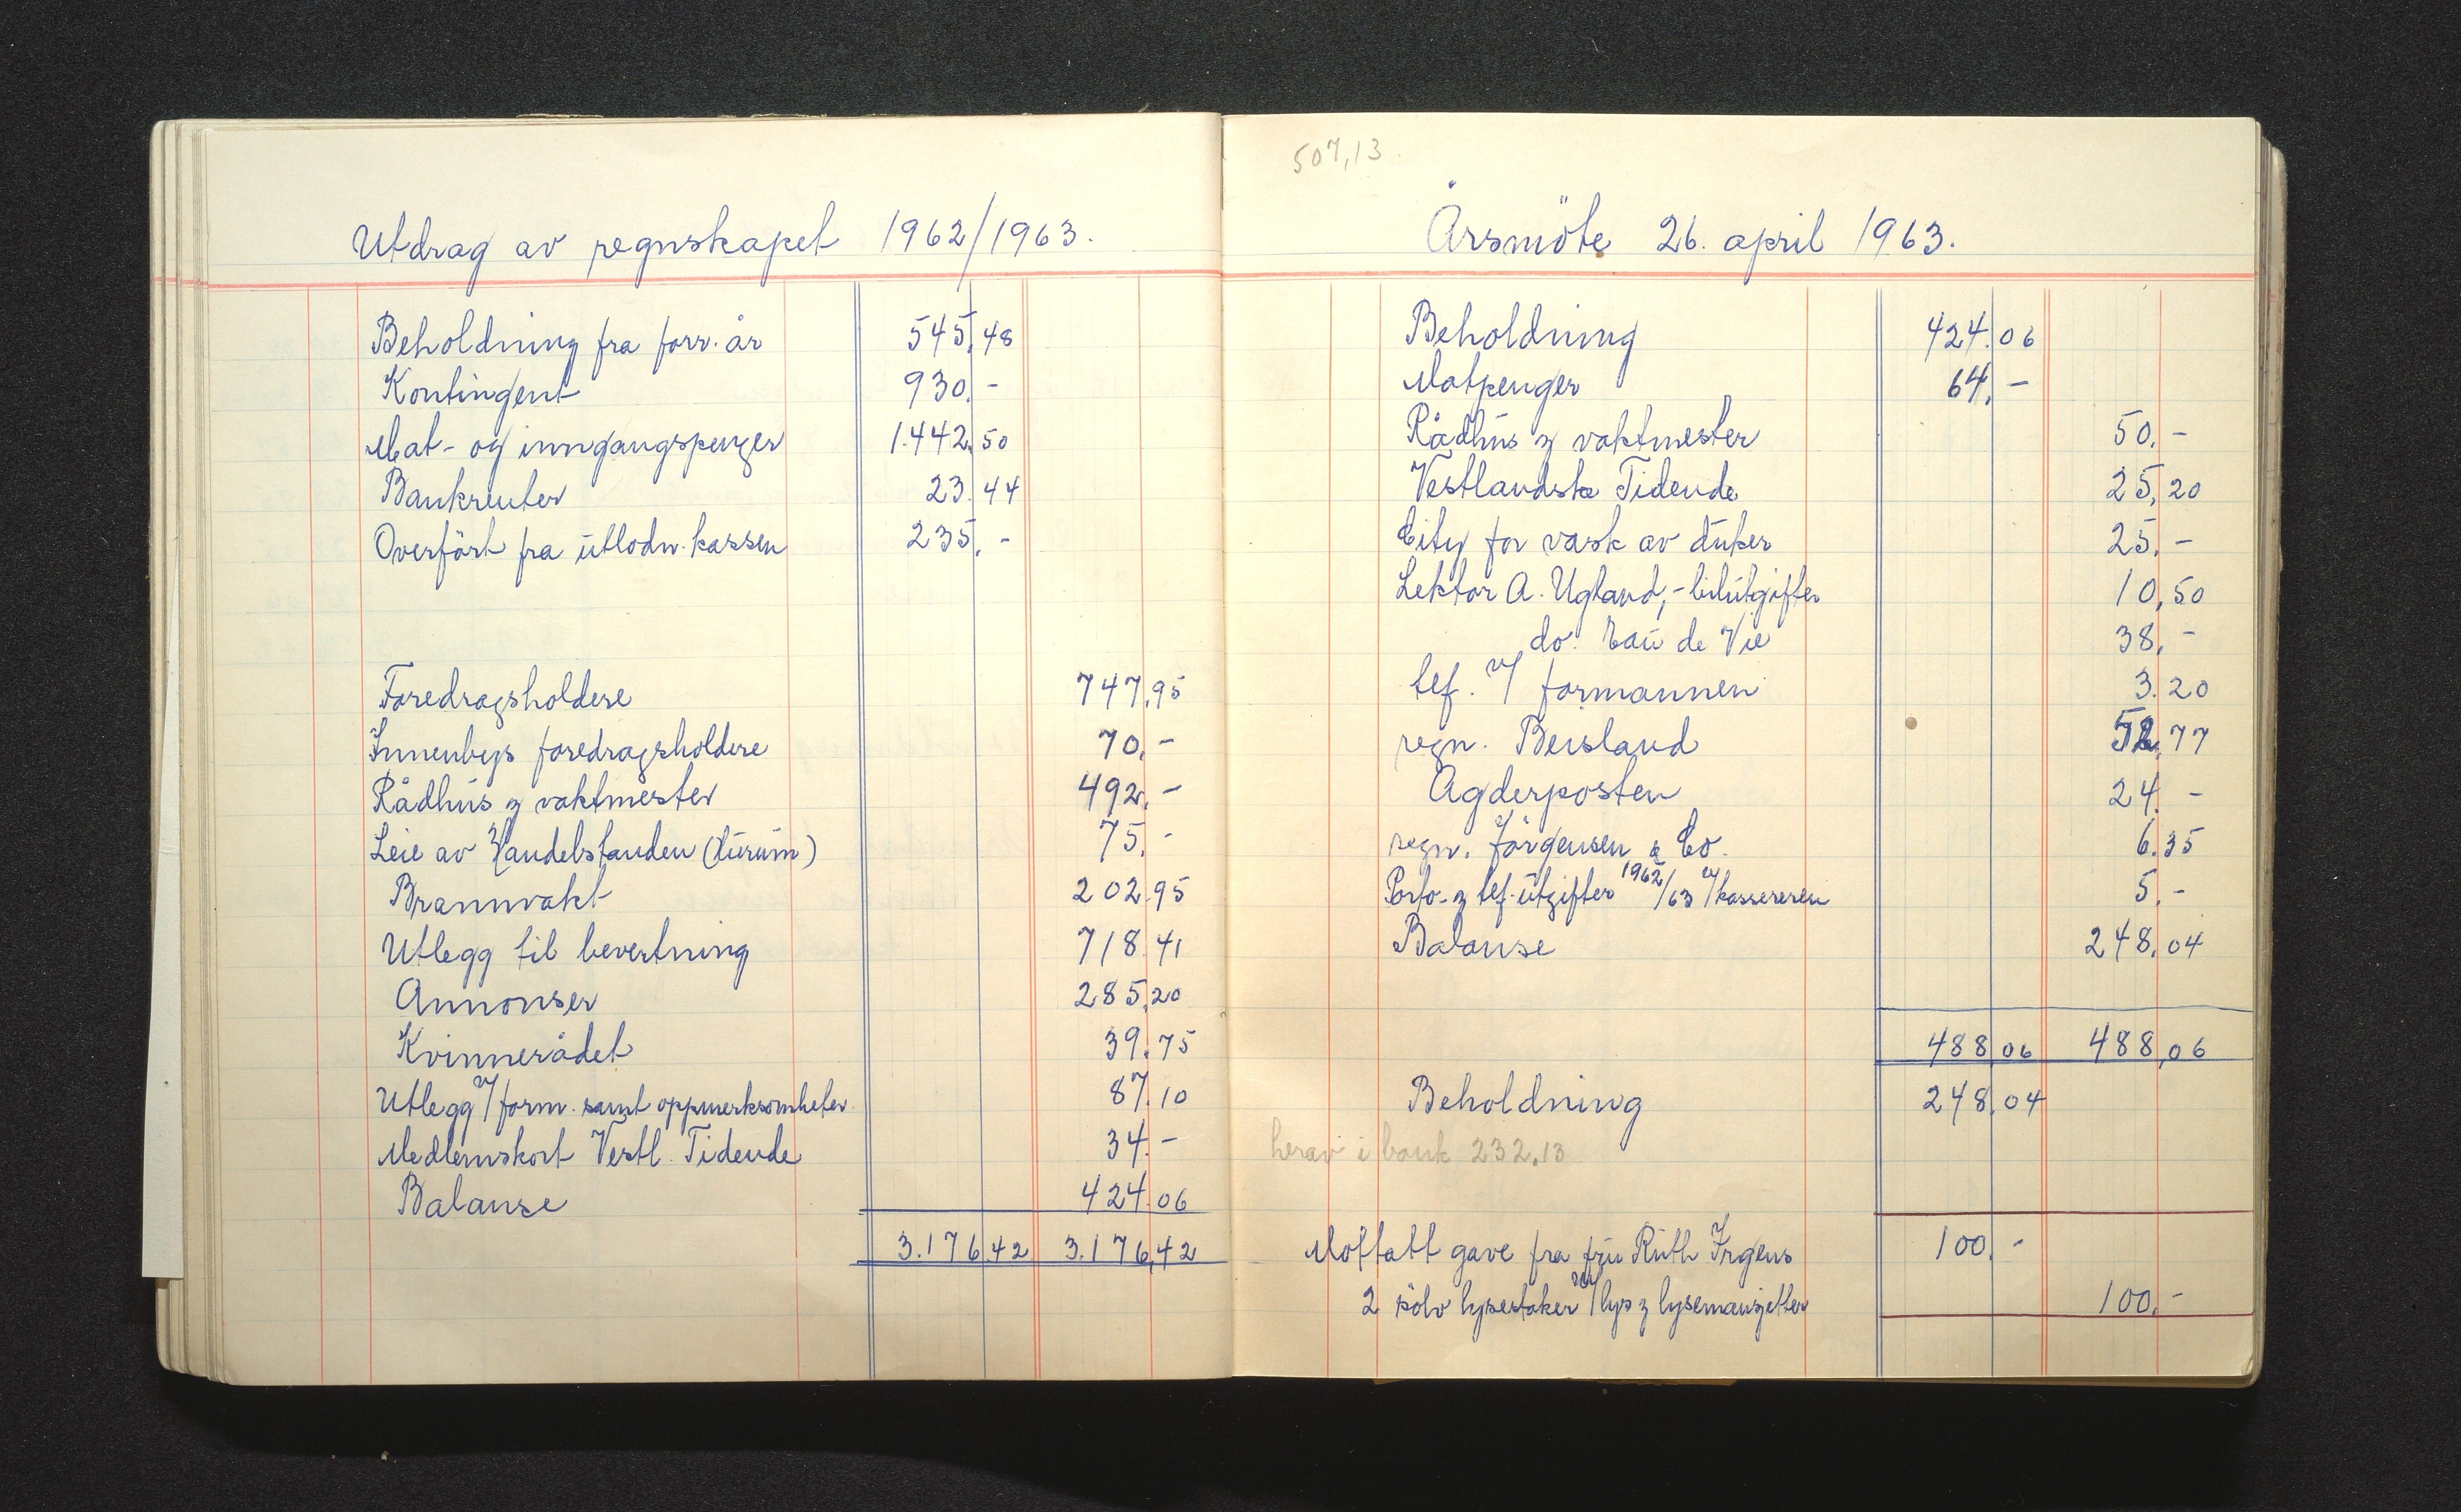 Utdrag av regnskapet 1962/1963.
Beholdning fra forr. år 545,48
Kontingent 930.-
Mat- og inngangspenger 1.442,50
Bankrenter 23.44
Overfört fra utlodn. kassen 235.-
Foredragsholdere 747,95
Innenbys foredragsholdere 70.-
Rådhus & vaktmester 492.-
Leie av Handelstanden (Durum) 75.-
Brannvakt 202.95
Utlegg til bevertning 718.41
Annonser 285,20
Kvinnerådet 39.75
Utlegg v/ form. samt oppmerksomheter 87.10
Medlemskort Vestl. Tidende 34.-
Balanse 424.06
3.176.42 3.176,42
507,13.
Årsmöte 26. april 1963.
Beholdning 424.06
Matpenger 64.-
Rådhus & vaktmester 50.-
Vestlandske Tidende 25,20
City for vask av duker 25.-
Lektor A. Ugland,- bilutgifter 10,50
do. Eau de Vie 38,-
tef. v/ formannen 3.20
regn. Beisland 52,77
Agderposten 24.-
regn. Jörgensen & Co. 6.35
Porto- & tef-utgifter 1962/63 v/kassereren 5.-
Balanse 248,04
488,06 488,06
Beholdning 248,04
herav i bank 232,13
Mottatt gave fra fru Ruth Irgens 100.-
2 sölv lysestaker m/lys & lysemansjetter 100.-